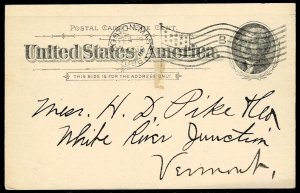 POSTAL CARD ONE CENT.
United States of America.
THIS SIDE IS FOR THE ADDRESS ONLY.
Mess. H. D. Pike &
White River Junction
Vermont.